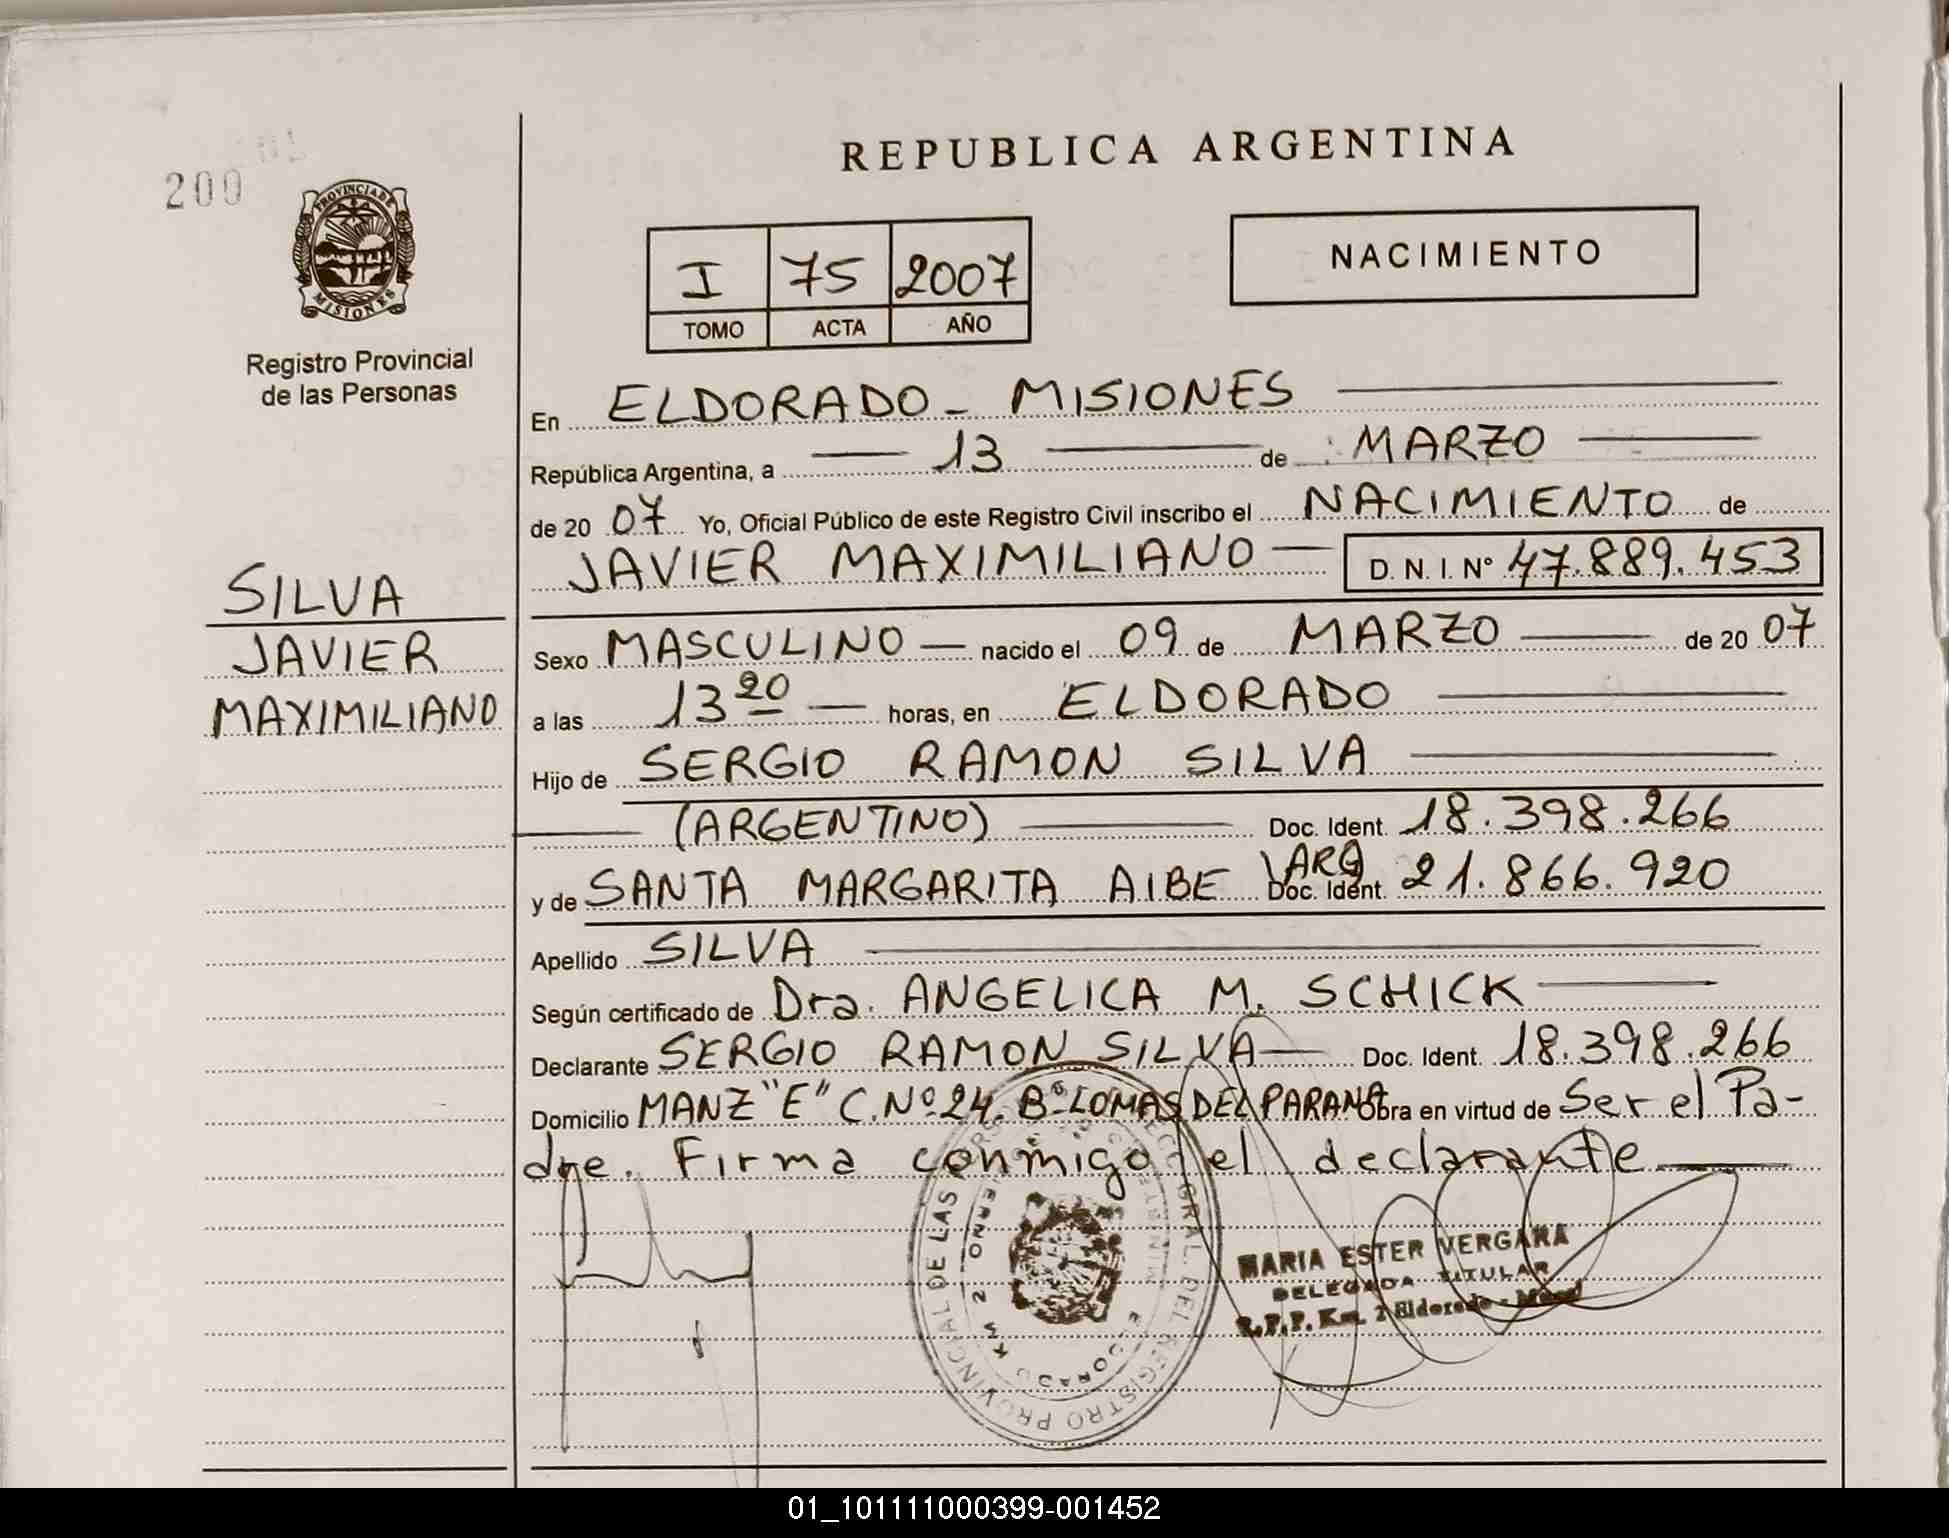 200
PROVINCIA DE
MISIONES
Registro Provincial
de las Personas
SILVA
JAVIER
MAXIMILIANO
REPUBLICA ARGENTINA
I 75 2007
TOMO ACTA AÑO
NACIMIENTO
En ELDORADO - MISIONES
República Argentina, a 13 de MARZO
de 20 07 Yo, Oficial Público de este Registro Civil inscribo el NACIMIENTO de
JAVIER MAXIMILIANO D. N. I. Nº 47.889.453
Sexo MASCULINO nacido el 09 de MARZO de 20 07
a las 13 20 horas, en ELDORADO
Hijo de SERGIO RAMON SILVA
(ARGENTINO) Doc. Ident. 18.398.266
y de SANTA MARGARITA AIBE ARG Doc. Ident. 21.866.920
Apellido SILVA
Según certificado de Dra. ANGELICA M. SCHICK
Declarante SERGIO RAMON SILVA Doc. Ident. 18.398.266
Domicilio MANZ "E" C. Nº 24. Bº LOMAS DEL PARANA Obra en virtud de Ser el Pa-
dre. Firma conmigo el declarante
GRAL. DEL REGISTRO PROVINCIAL DE LAS
ELDORADO KM 2
MARIA ESTER VERGARA
DELEGADA TITULAR
R.P.P. Km. 2 Eldorado
01_101111000399-001452